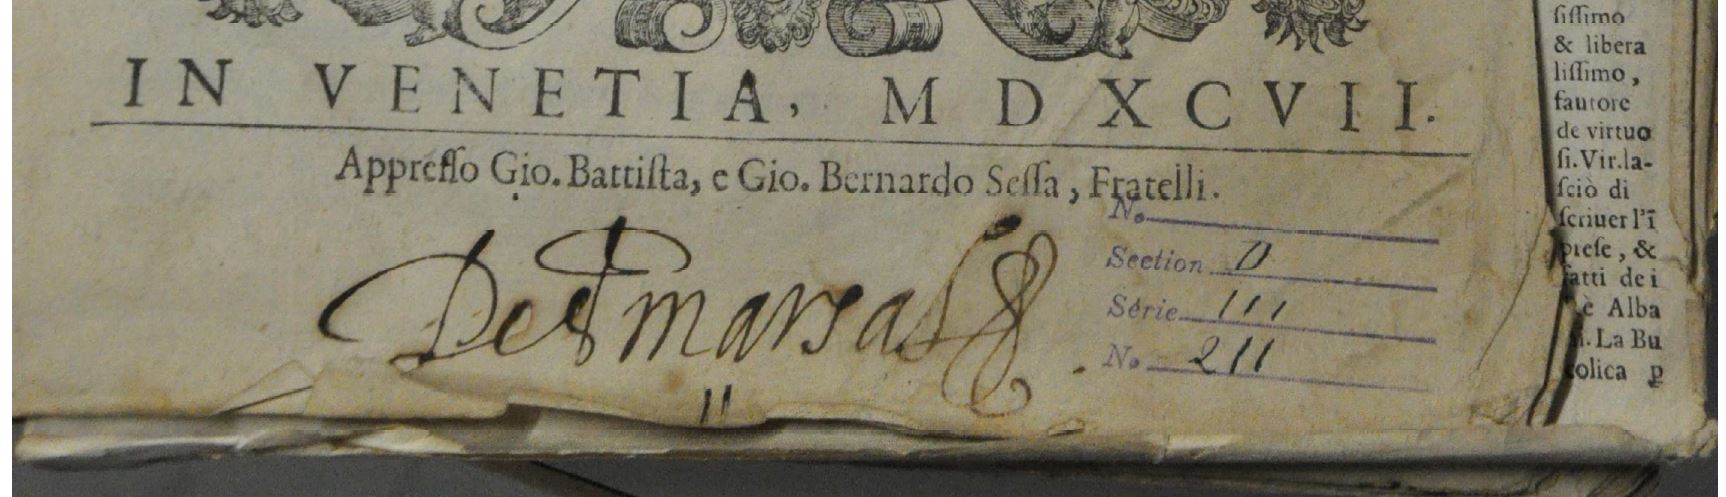 IN VENETIA, MDXCVII.
Appresso Gio. Battista, e Gio. Bernardo Sessa, Fratelli.
No.
Section D
Série 111
No. 211
11
sissimo
& libera
lissimo,
fautore
de virtuo
si. Vir. la-
sciò di
scriuer l'ī
prese, &
fatti de i
è Alba
La Bu
colica p